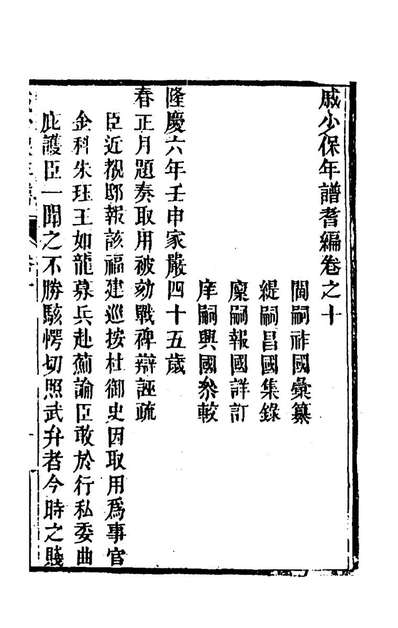 戚少保年譜耆編卷之十
閫嗣祚國彙纂
緹嗣昌國集錄
廩嗣報國詳訂
庠嗣興國叅較
隆慶六年壬申家嚴四十五歲
春正月題奏取用被劾戰碑辯誣疏
臣近覩邸報該福建巡按杜御史因取用爲事官
金科朱珏王如龍募兵赴薊論臣敢於行私委曲
庇護臣一聞之不勝駭愕切照武弁者今時之賤